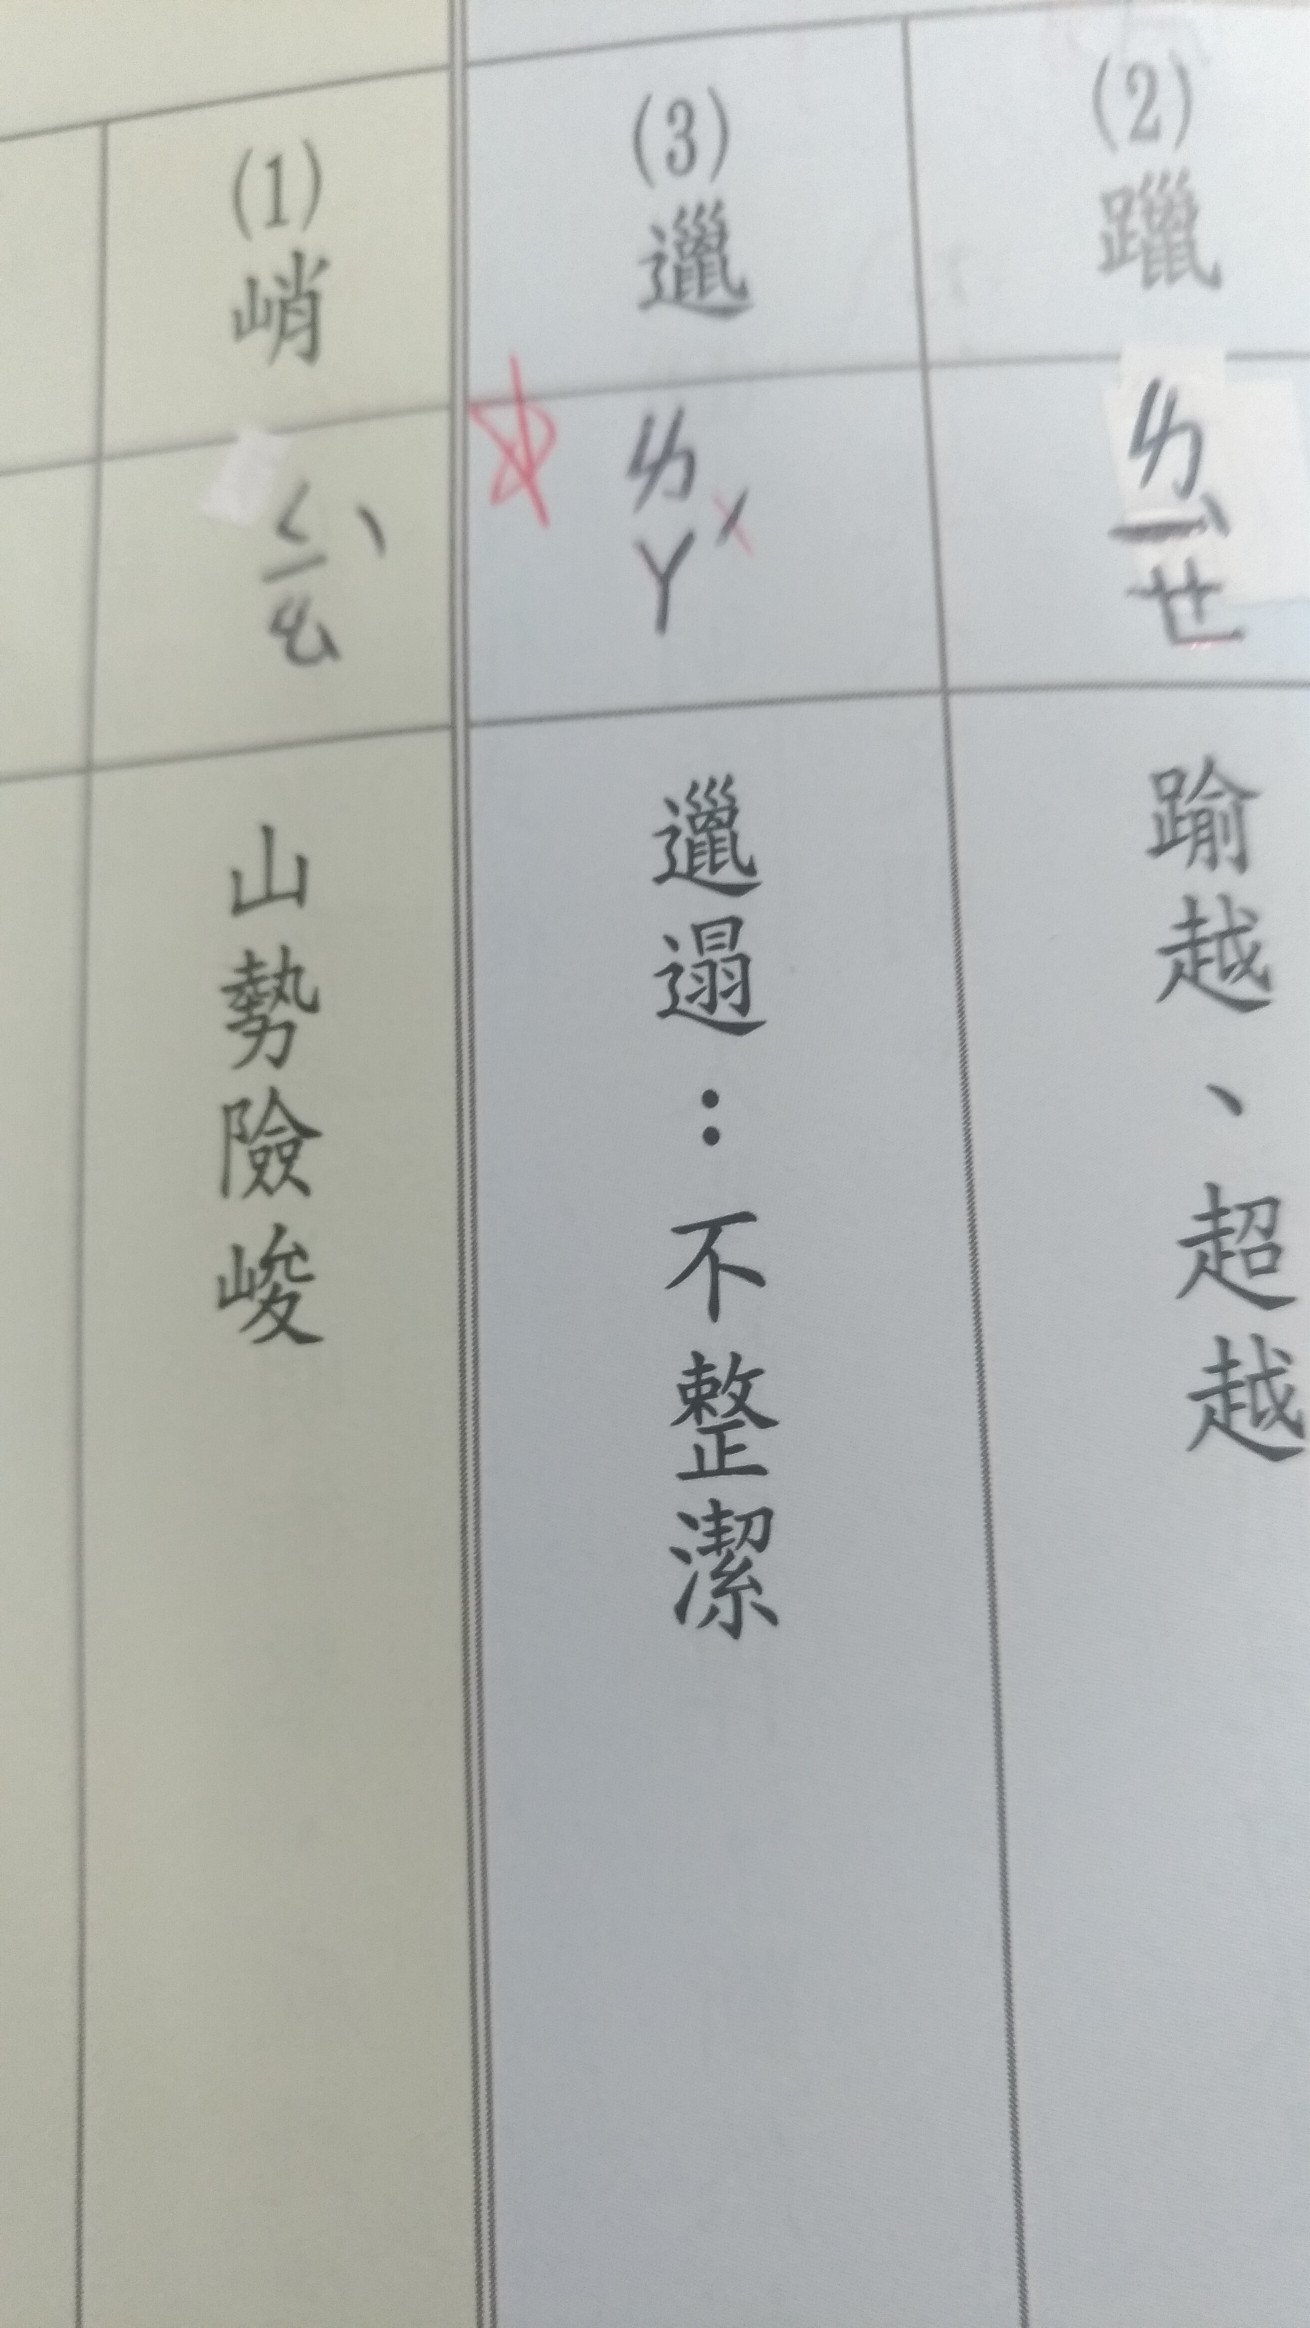 (2)躐
ㄌㄧㄝˋ
踰越、超越
(3)邋
ㄌㄚˊ
邋遢：不整潔
(1)峭
ㄑㄧㄠˋ
山勢險峻